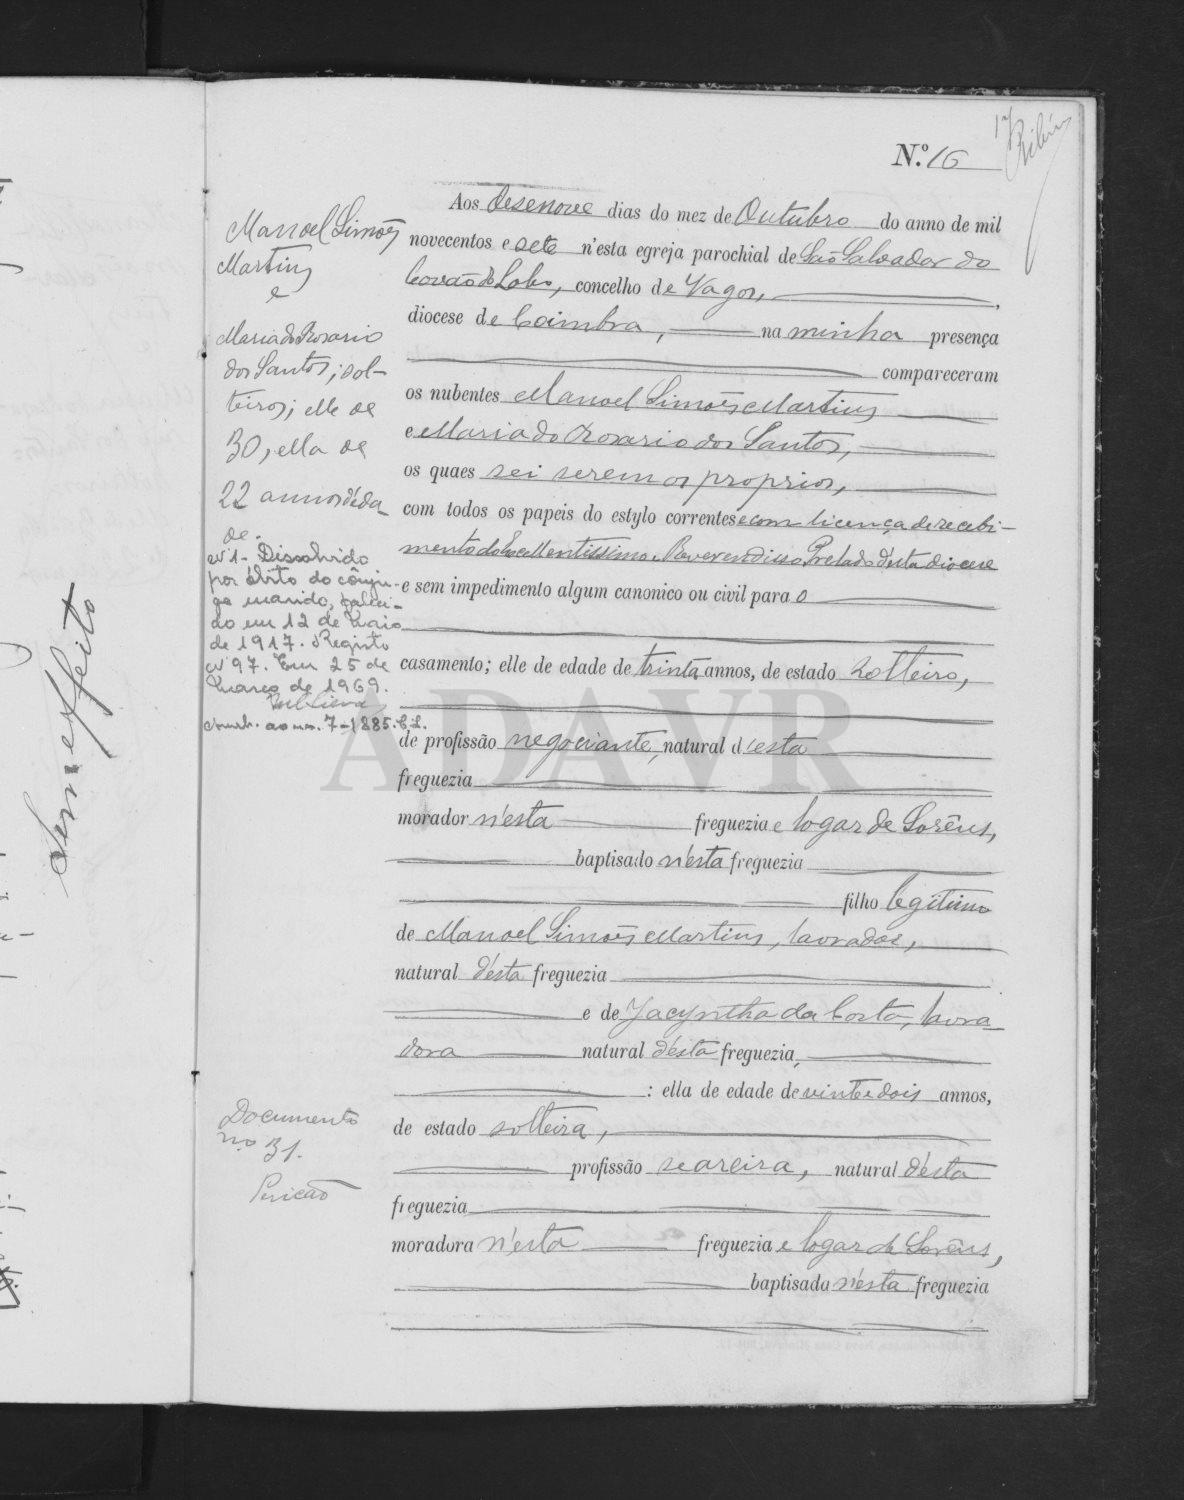 17
Ribeiro
N.º 16
Manoel Simões
Martins
e
Maria do Rosario
dos Santos; sol-
teiros; elle de
30, ella de
22 annos d'eda-
de.
Nº 1 - Dissolvido
por óbito do cônju-
ge marido, faleci-
do em 12 de Maio
de 1917. Registo
nº 97. Em 25 de
Março de 1969.
Aos desenove dias do mez de Outubro do anno de mil
novecentos e sete n'esta egreja parochial de São Salvador do
Covão do Lobo, concelho de Vagos,
diocese de Coimbra, na minha presença
compareceram
os nubentes Manoel Simões Martins
e Maria do Rosario dos Santos,
os quaes sei serem os proprios,
com todos os papeis do estylo correntes e com licença de recebi-
mento do Excellentissimo e Reverendissimo Prelado d'esta diocese
e sem impedimento algum canonico ou civil para o
casamento; elle de edade de trinta annos, de estado solteiro,
de profissão negociante, natural d'esta
freguezia
morador n'esta freguezia e logar de Sorêns,
baptisado n'esta freguezia
filho legitimo
de Manoel Simões Martins, lavrador,
natural d'esta freguezia
e de Jacyntha da Costa, lavra-
dora natural d'esta freguezia,
: ella de edade de vinte e dois annos,
de estado solteira,
profissão seareira, natural d'esta
freguezia
moradora n'esta freguezia e logar de Sorêns,
baptisada n'esta freguezia
Documento
n.º 31.
Sem effeito
ADAVR